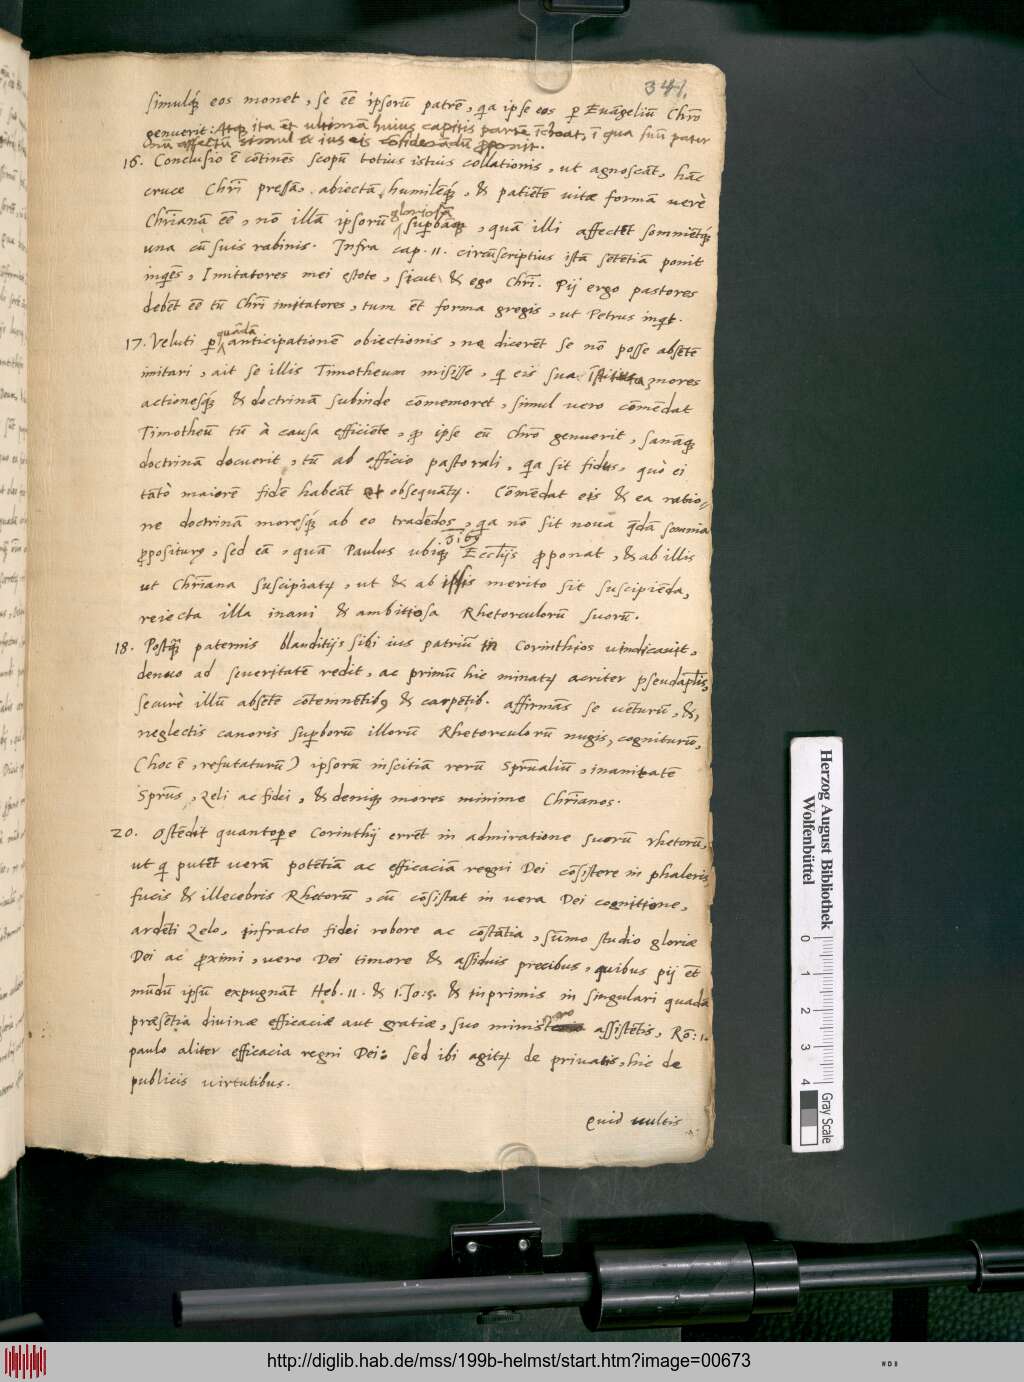 341.
simulq́ꝫ eos monet, se eē ipsorū patrē, q̃a ipse eos ꝑ Euãgeliū Chrō
genuerit: Atqꝫ ita ēt ultimam huius capitis partē īchoat, ī qua suū pater
nū affectū simul & ius eis cōsiderādū ꝓponit.
16. Conclusio ē cōtinēs scopū totius istuis collationis, ut agnoscāt, hāc
cruce Chrī pressā, abiectā, humilēq́ꝫ, & patiētē uitæ formā uerè
Chrīanā eē, nō illā ipsorū gloriosā suꝑbāqꝫ, quā illi affectēt somniētq́ꝫ
una cū suis rabinis. Infra cap. 11. circūscriptius istā sētētiā ponit
inq̃ēs, Imitatores mei estote, sicut & ego Chrī. Pij ergo pastores
debēt eē tū Chrī imitatores, tum ēt forma gregis, ut Petrus inq̃t.
17. Veluti ꝑ quādā anticipationē obiectionis, ne dicerēt se nō posse absētē
imitari, ait se illis Timotheum misisse, q̃ eis sua mores
actionesq́ꝫ & doctrinā subinde cōmemoret, simul uero cōmēdat
Timotheū tū à causa efficiēte, ꝙ ipse eū Chrō genuerit, sanāqꝫ
doctrinā docuerit, tū ab officio pastorali, q̃a sit fidus, quò ei
tātò maiorē fidē habeāt et obsequāt̃. Cōmēdat eis & ea ratio=
ne doctrinā moresq́ꝫ ab eo tradēdos, q̃a nō sit noua q̃dā somnia
ꝓpositurꝰ, sed eā, quā Paulus ubiqꝫ oĩbꝰ Eccl̄ijs ꝓponat, & ab illis
ut Chrīana suscipiat̃, ut & ab ipsis merito sit suscipiēda,
reiecta illa inani & ambitiosa Rhetorculorū suorū.
18. Postq̃ꝫ paternis blanditijs sibi ius patriū in Corinthios uindicauit,
denuo ad seueritatē redit, ac primū hic minat̃ acriter pseudap̄lis,
securè illū absētē cōtemnētibꝰ & carpētib. affirmās se uēturū, &,
neglectis canoris suꝑborū illorū Rhetorculorū nugis, cogniturū,
(hoc ē, refutaturū) ipsorū inscitiā rerū Sprūaliū, inanitatē
Sprūs, Zeli ac fidei, & deniqꝫ mores minime Chrīanos.
20. Ostēdit quantoꝑe Corinthij errēt in admiratione suorū rhetorū,
ut q̃ putēt uerā potētiā ac efficaciā regni Dei cōsistere in phaleris,
fucis & illecebris Rhetorū, cū cōsistat in uera Dei cognitione,
ardēti Zelo, infracto fidei robore ac cōstātia, sūmo studio gloriæ
Dei ac ꝓximi, uero Dei timore & assiduis precibus, quibus pij ēt
mūdū ipsū expugnāt Heb. 11. & 1. Jo: 5. & inprimis in singulari quadā
præsētia diuinæ efficaciæ aut gratiæ, suo ministro assistētis, Rō: 1.
paulo aliter efficacia regni Dei: sed ibi agit̃ de priuatis, hic de
publicis uirtutibus.
Quid uultis
Herzog August Bibliothek
Wolfenbüttel
0 1 2 3 4
Gray Scale
http://diglib.hab.de/mss/199b-helmst/start.htm?image=00673
WDB